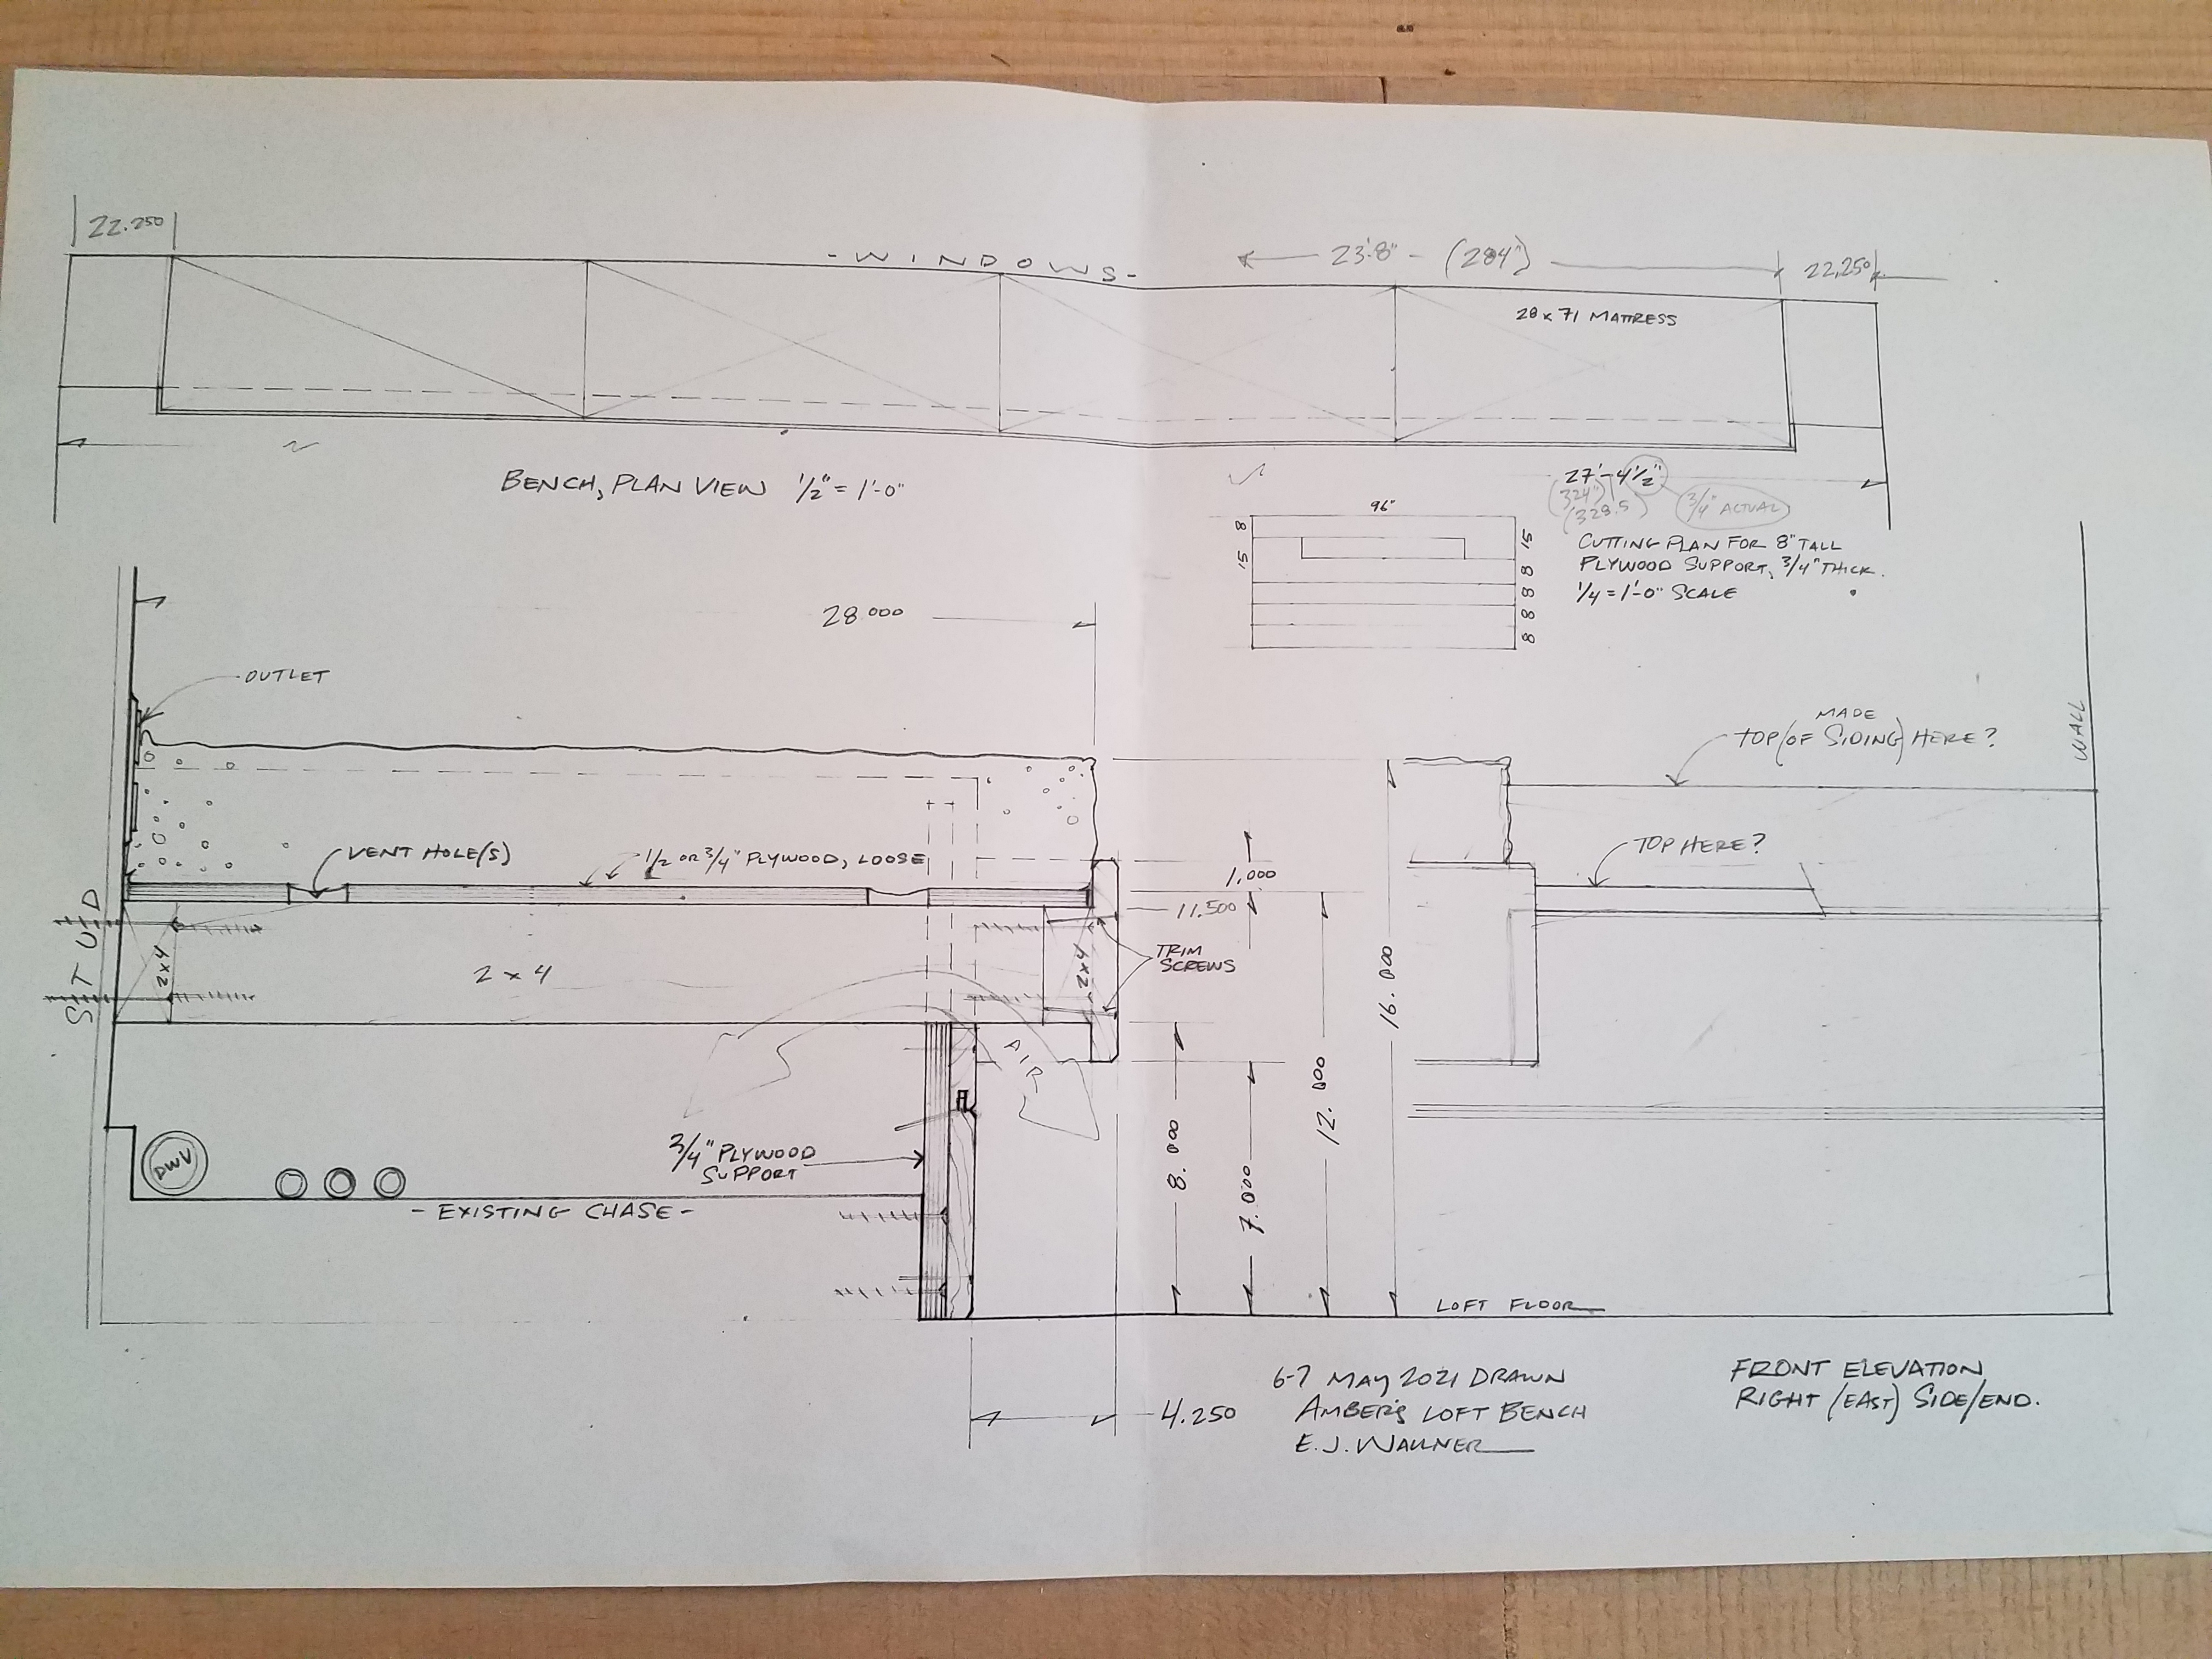 22.250
- WINDOWS -
23'-8" - (284")
22.250
28 x 71 MATTRESS
BENCH, PLAN VIEW 1/2" = 1'-0"
27'-4 1/2"
(324")
(328.5)
3/4" ACTUAL
96"
8
15
15
8
8
8
8
CUTTING PLAN FOR 8" TALL
PLYWOOD SUPPORT, 3/4" THICK.
1/4 = 1'-0" SCALE
28.000
OUTLET
MADE
TOP (OF SIDING) HERE?
WALL
VENT HOLE(S)
1/2 OR 3/4" PLYWOOD, LOOSE
TOP HERE?
1.000
11.500
STUD
2x4
2 x 4
2x4
TRIM
SCREWS
16.000
AIR
12.000
8.000
7.000
3/4" PLYWOOD
SUPPORT
DWV
- EXISTING CHASE -
LOFT FLOOR
4.250
6-7 MAY 2021 DRAWN
AMBER'S LOFT BENCH
E. J. WALLNER
FRONT ELEVATION
RIGHT (EAST) SIDE/END.